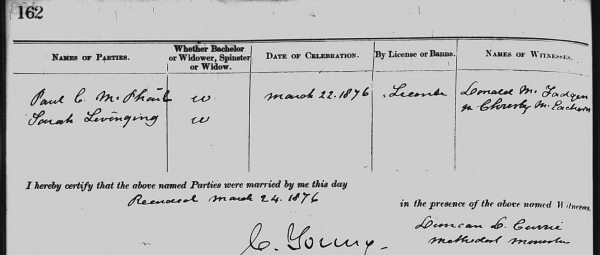 162
NAMES OF PARTIES. Whether Bachelor or Widower, Spinster or Widow. DATE OF CELEBRATION. By License or Banns. NAMES OF WITNESSES.
Paul C. McPhail w March 22. 1876 License Donald McFadgen
Sarah w McEachern
I hereby certify that the above named Parties were married by me this day
March 24. 1876
in the presence of the above named Witnesses.
Duncan D. Currie
C. Young. Methodist Minister